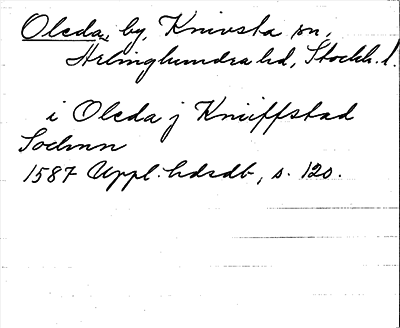 Olcda, by, Knivsta sn,
Ärlinghundra hd, Stockh. l.
i Olcda j Kniiffstad
Sochnn
1587 Uppl. hdsdb, s. 120.